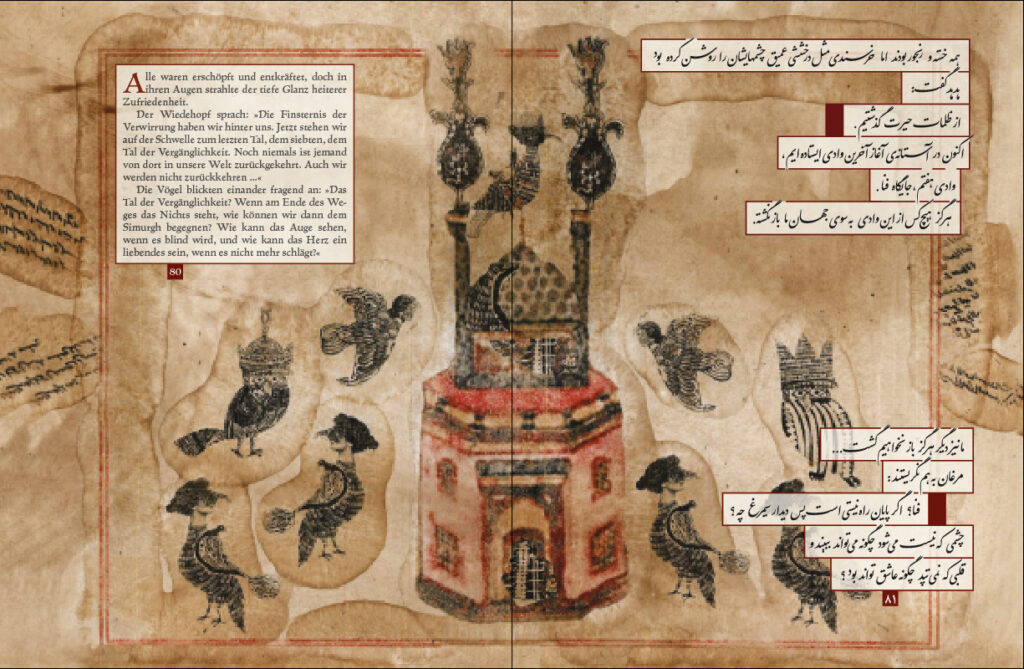 Alle waren erschöpft und entkräftet, doch in
ihren Augen strahlte der tiefe Glanz heiterer
Zufriedenheit.
Der Wiedehopf sprach: »Die Finsternis der
Verwirrung haben wir hinter uns. Jetzt stehen wir
auf der Schwelle zum letzten Tal, dem siebten, dem
Tal der Vergänglichkeit. Noch niemals ist jemand
von dort in unsere Welt zurückgekehrt. Auch wir
werden nicht zurückkehren ...«
Die Vögel blickten einander fragend an: »Das
Tal der Vergänglichkeit? Wenn am Ende des We-
ges das Nichts steht, wie können wir dann dem
Simurgh begegnen? Wie kann das Auge sehen,
wenn es blind wird, und wie kann das Herz ein
liebendes sein, wenn es nicht mehr schlägt?«
80
همه خسته و رنجور بودند اما خرسندی مثل درخششی عمیق چشمهایشان را روشن کرده بود
هدهد گفت:
از ظلمات حیرت گذشتیم.
اکنون در آستانه‌ی آغاز آخرین وادی ایستاده ایم،
وادی هفتم، جایگاه فنا.
هرگز هیچ کس از این وادی به سوی جهان ما باز نگشته.
ما نیز دیگر هرگز باز نخواهیم گشت...
مرغان به هم نگریستند:
فنا؟ اگر پایان راه نیستی است پس دیدار سیمرغ چه؟
چشمی که نیست می‌شود چگونه می‌تواند ببیند و
قلبی که نمی تپد چگونه عاشق تواند بود؟
۸۱